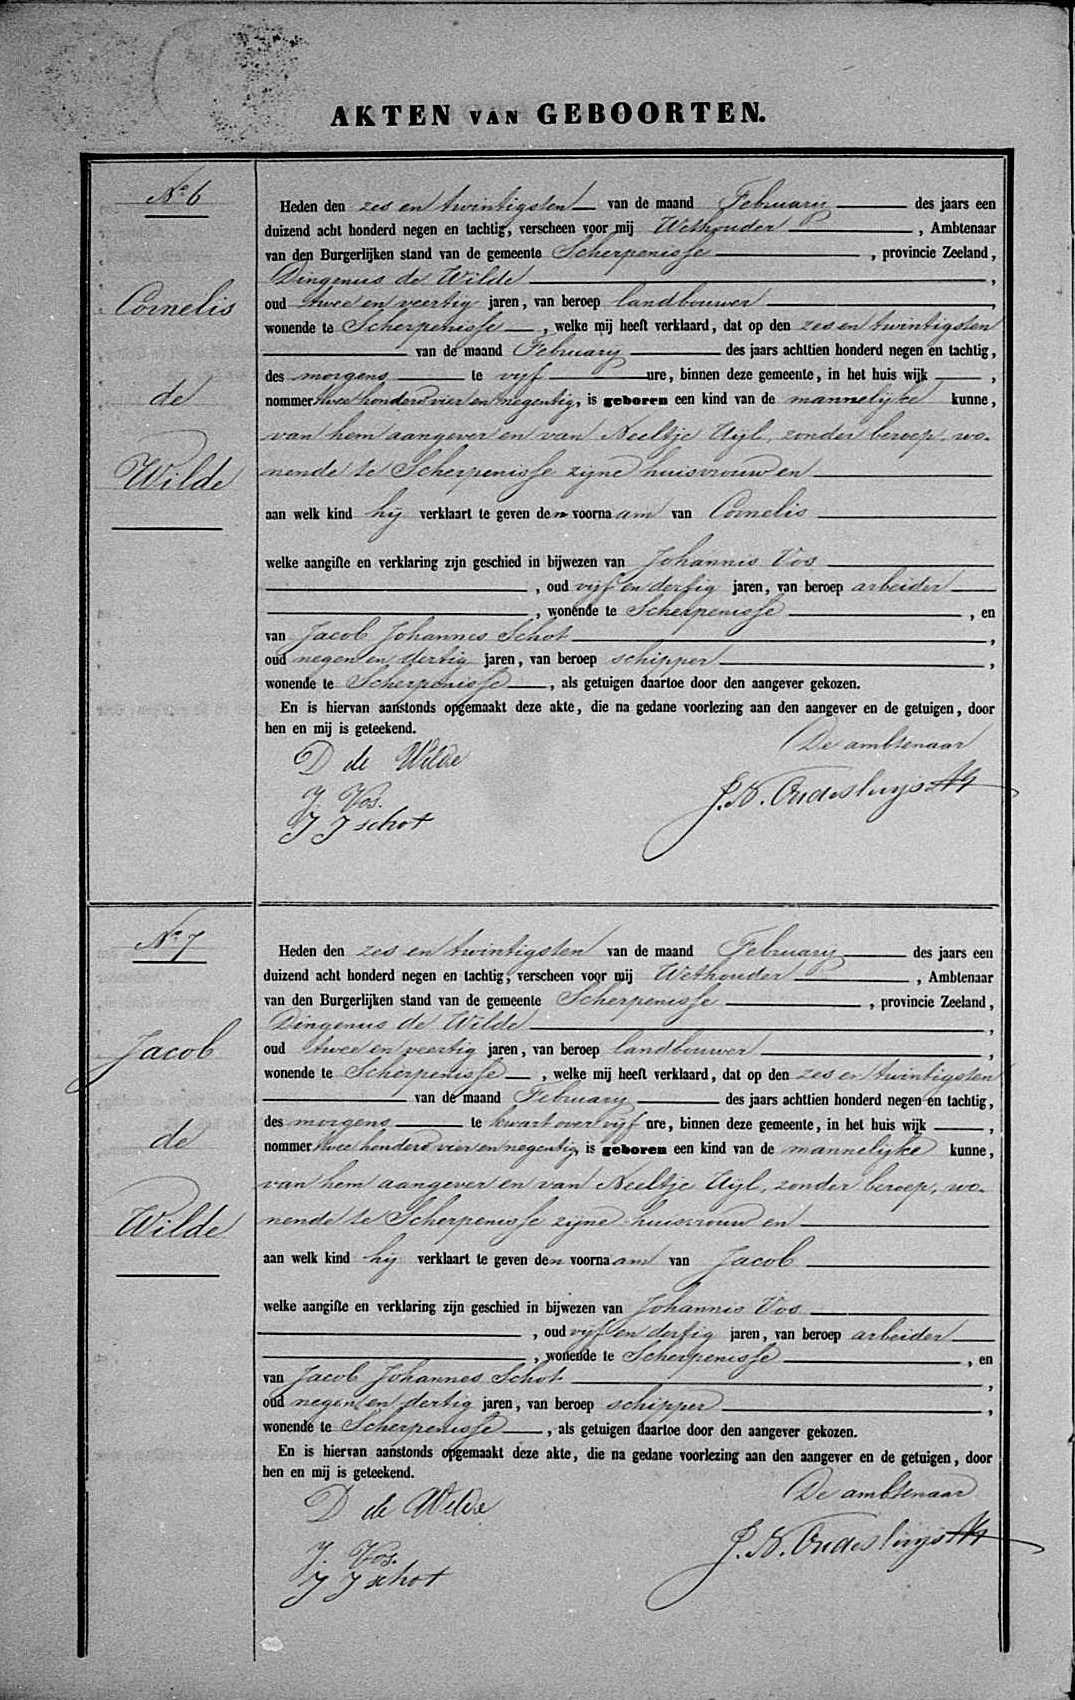 AKTEN VAN GEBOORTEN.
No 6
Cornelis
de
Wilde
Heden den zes en twintigsten van de maand February des jaars een
duizend acht honderd negen en tachtig, verscheen voor mij Wethouder , Ambtenaar
van den Burgerlijken stand van de gemeente Scherpenisse , provincie Zeeland,
Dingenus de Wilde ,
oud twee en veertig jaren, van beroep landbouwer ,
wonende te Scherpenisse , welke mij heeft verklaard, dat op den zes en twintigsten
van de maand February des jaars achttien honderd negen en tachtig,
des morgens te vijf ure, binnen deze gemeente, in het huis wijk ,
nommer twee honderd vier en negentig, is geboren een kind van de mannelijke kunne,
van hem aangever en van Neeltje Uijl, zonder beroep, wo-
nende te Scherpenisse zijne huisvrouw en
aan welk kind hij verklaart te geven den voornaam van Cornelis
welke aangifte en verklaring zijn geschied in bijwezen van Johannis Vos
, oud vijf en dertig jaren, van beroep arbeider
, wonende te Scherpenisse , en
van Jacob Johannes Schot ,
oud negen en dertig jaren, van beroep schipper ,
wonende te Scherpenisse , als getuigen daartoe door den aangever gekozen.
En is hiervan aanstonds opgemaakt deze akte, die na gedane voorlezing aan den aangever en de getuigen, door
hen en mij is geteekend.
De ambtenaar
D de Wilde
J. Vos.
J J schot
Oudesluijs
No 7
Jacob
de
Wilde
Heden den zes en twintigsten van de maand February des jaars een
duizend acht honderd negen en tachtig, verscheen voor mij Wethouder , Ambtenaar
van den Burgerlijken stand van de gemeente Scherpenisse , provincie Zeeland,
Dingenus de Wilde ,
oud twee en veertig jaren, van beroep landbouwer ,
wonende te Scherpenisse , welke mij heeft verklaard, dat op den zes en twintigsten
van de maand February des jaars achttien honderd negen en tachtig,
des morgens te kwart over vijf ure, binnen deze gemeente, in het huis wijk ,
nommer twee honderd vier en negentig, is geboren een kind van de mannelijke kunne,
van hem aangever en van Neeltje Uijl, zonder beroep, wo-
nende te Scherpenisse zijne huisvrouw en
aan welk kind hij verklaart te geven den voornaam van Jacob
welke aangifte en verklaring zijn geschied in bijwezen van Johannis Vos
, oud vijf en dertig jaren, van beroep arbeider
, wonende te Scherpenisse , en
van Jacob Johannes Schot ,
oud negen en dertig jaren, van beroep schipper ,
wonende te Scherpenisse , als getuigen daartoe door den aangever gekozen.
En is hiervan aanstonds opgemaakt deze akte, die na gedane voorlezing aan den aangever en de getuigen, door
hen en mij is geteekend.
De ambtenaar
D de Wilde
J. Vos.
J J schot
Oudesluijs